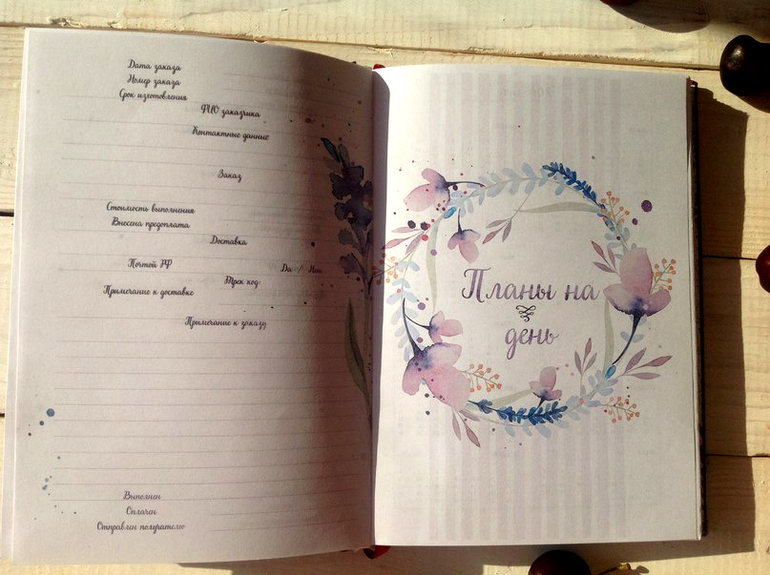 Дата заказа
Номер заказа
Срок изготовления
ФИО заказчика
Контактные данные
Заказ
Стоимость выполнения
Внесена предоплата
Доставка
Почтой РФ Да / Нет
Трек код
Примечание к доставке
Примечание к заказу
Выполнен
Оплачен
Отправлен получателю
Планы на
день